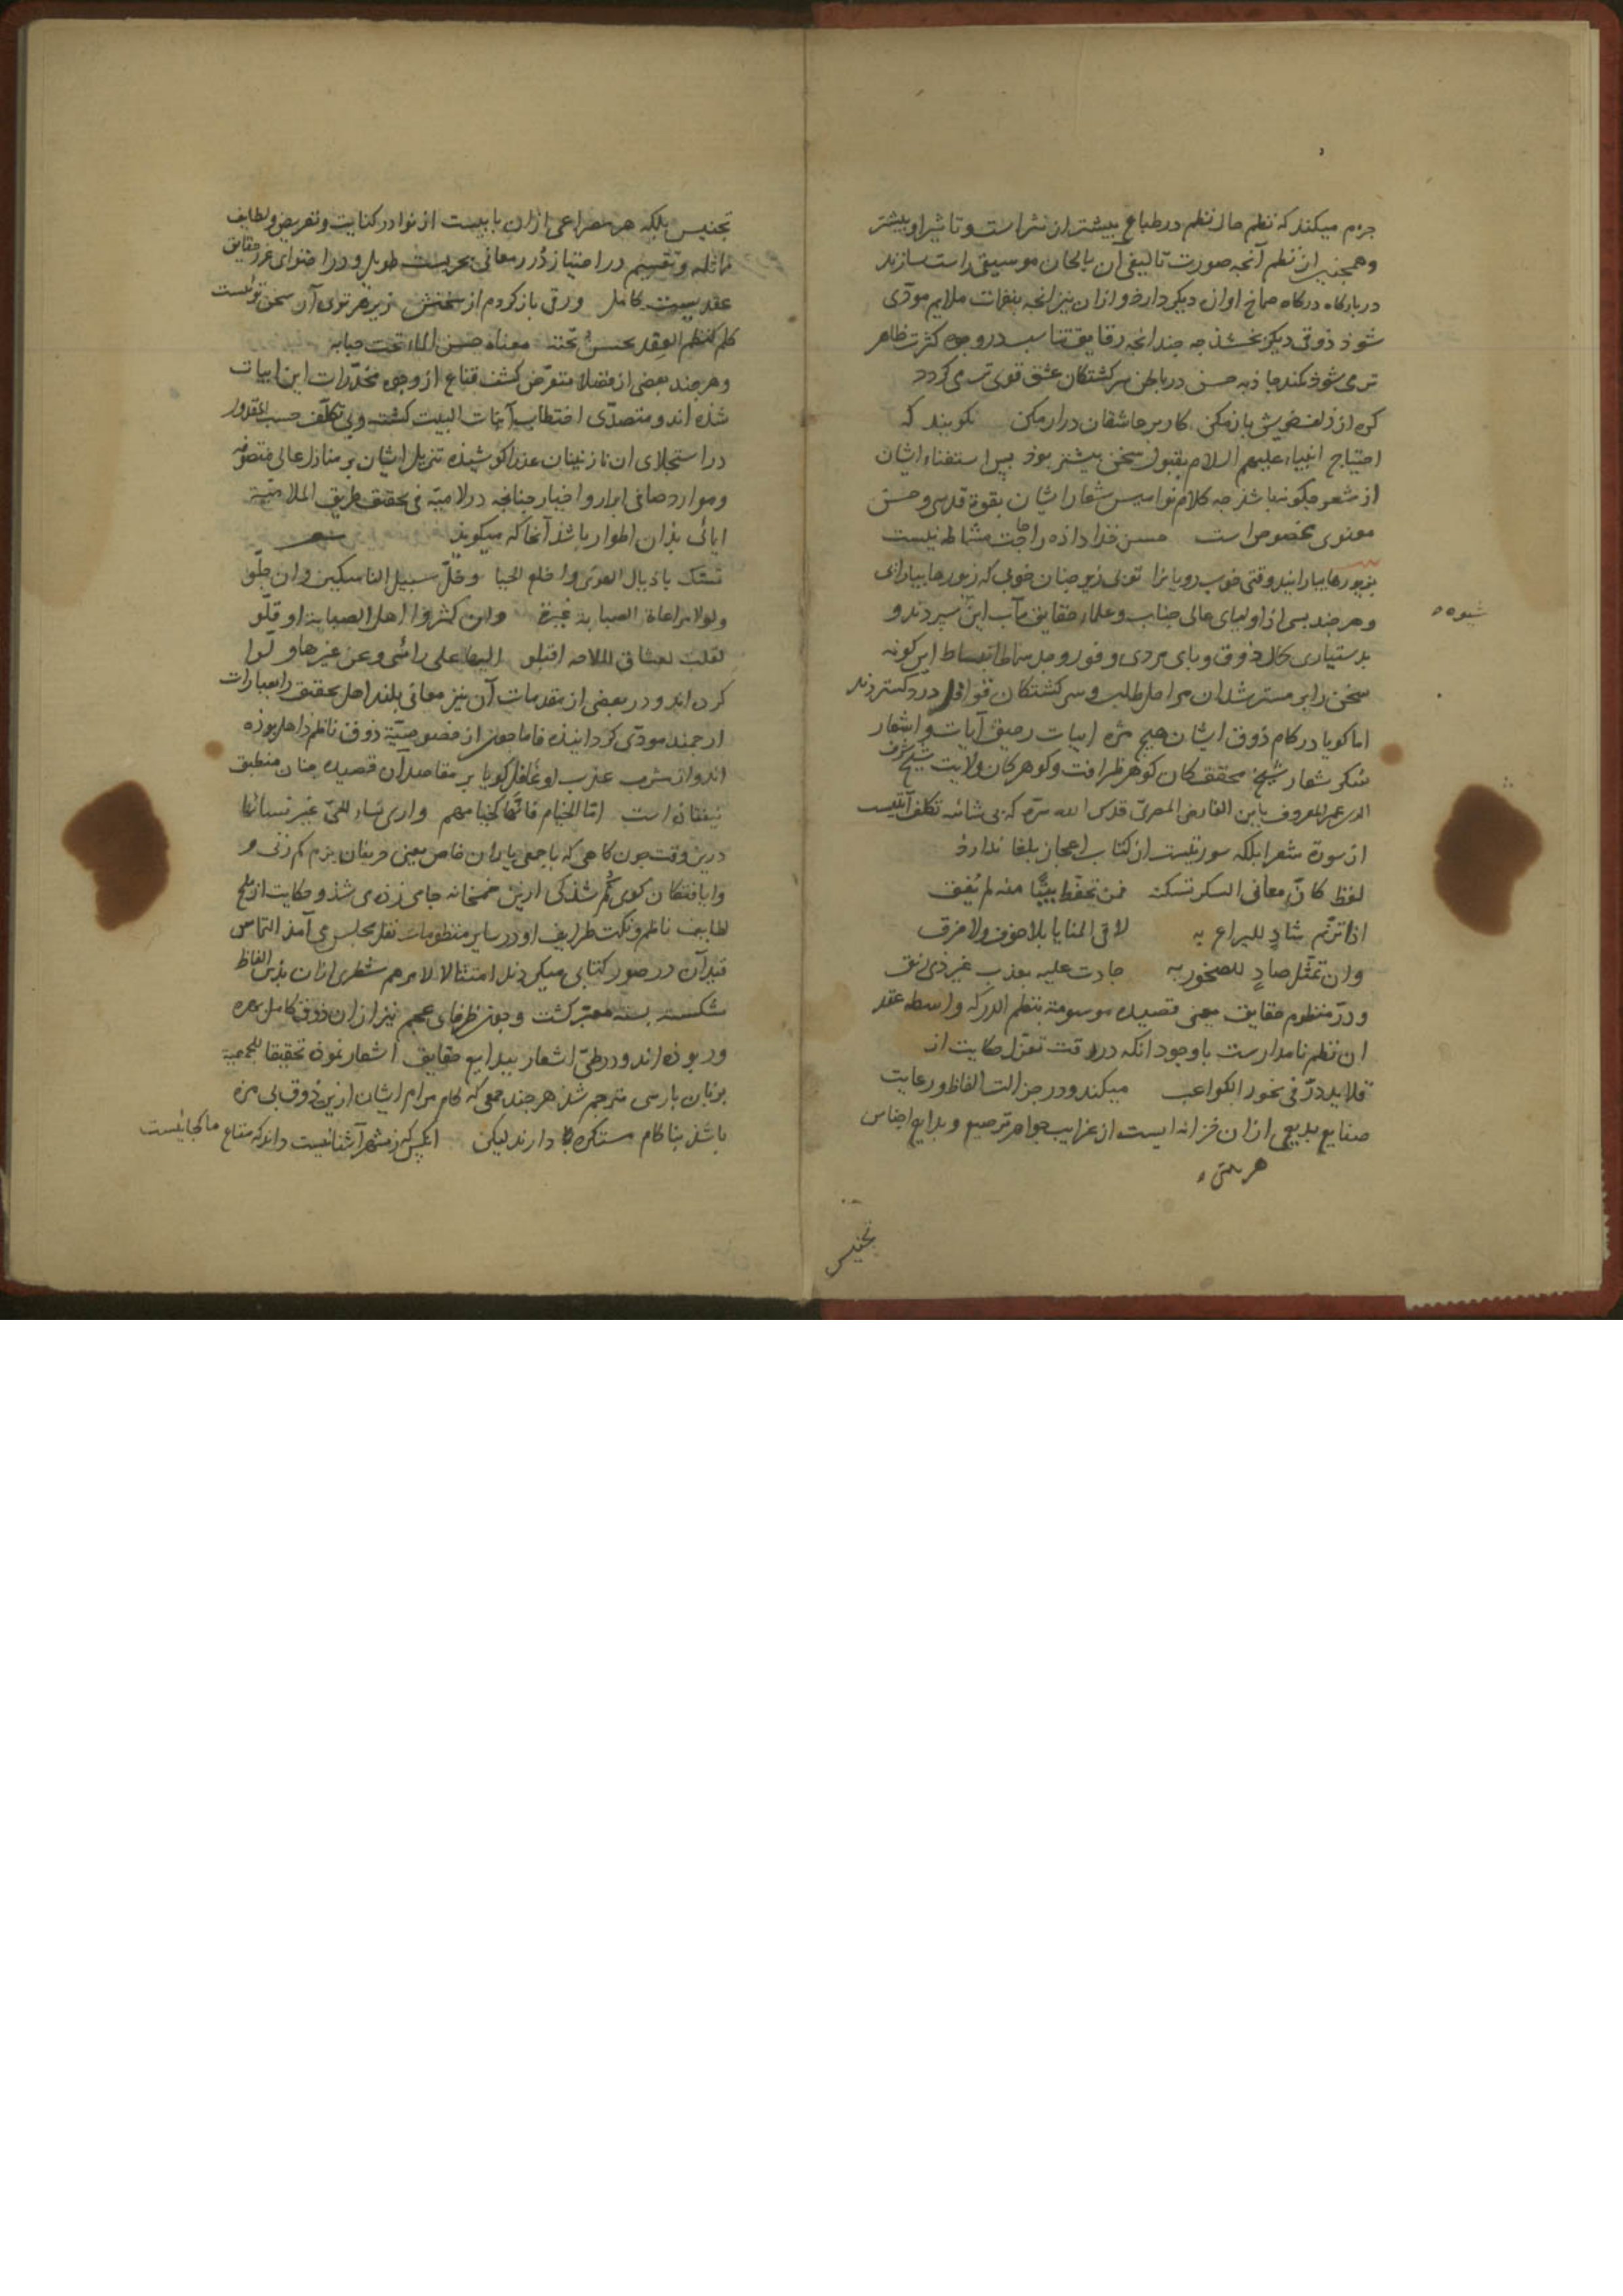 جزم میکند که نظم حال نظم در طباع بیشتر از نثر است و تاثیر او بیشتر
و همچنین از نظم آنچه صورت تالیفی آن بالحان موسیقی راست سازند
در بارکاه درکاه صماخ اوازه دیکر دارد و از ان نیز انچه بنغمات ملایم مودّی
شود ذوقی دیکر بخشد چه چندانچه رقایق تناسب در وجوه کثرت ظاهر
تر می شود کمند جاذبه حسن در باطن سرکشتکان عشق قوی تر می کردد
کره از زلف خویش باز مکن کار بر عاشقان دراز مکن نکویند که
احتیاج انبیاء علیهم السلام بقبول سخن بیشتر بود پس استغناء ایشان
از شعر چکونه باشد چه کلام نوامیس شعار ایشان بقوة قدسی و حسن
معنوی مخصوص است حسن خدا داده را حاجت مشاطه نیست
بزیورها بیارایند وقتی خوب رویانرا تو زیور چنان خوبی که زیورها بیارایی
و هر چند بسی از اولیای عالی جناب و علماء حقایق مآب این سپردند و
شیوه
بدستیاری کمال ذوق و پای مردی وفور وجد بساط انبساط این کونه
سخن را بر مسترشدان مراحل طلب و سرکشتکان قوافل درد کستردند
اما کویا در کام ذوق ایشان هیچ مزه ابیات رحیق آیات و اشعار
شکر شعار شیخ محقق کان کوهر ظرافت و کوهر کان ولایت شیخ شرف
الدین عمر المعروف بابن الفارض المصریّ قدس الله سرّه که بی شائبه تکلف آیتیست
از سورة شعرا بلکه سورتیست از کتاب اعجاز بلغا ندارد
لفظ کانّ معانی السکر تسکنه فمن تحفّظ بیتًا منه لم یُفِق
اذا ترنّم شادٍ للیراع به لاقی المنایا بلا خوف ولا فرق
وان تمثّل صادٍ للصخور به جادت علیه بعذب غیر ذی رنق
و درّ منظوم حقایق یعنی قصیده موسومه بنظم الدرر که واسطه عقد
ان نظم نامدارست با وجود انکه در رقت تغزل حکایت از
قلاید درّ فی نحور الکواعب میکند و در جزالت الفاظ و رعایت
صنایع بدیعی ازان خزانه ایست از غرایب جواهر ترصیع و بدایع اجناس
هر بیتی
تجنیس
تجنیس بلکه هر مصراعی ازان بابیست از نوادر کنایت و تعریض و لطایف
مماثله و تقسیم در امتیاز دُرر معانی بحریست طویل و در احتوای غرر حقایق
عقدیست کامل ورق باز کردم از سخنش زیر هر توی آن سخن تویست
کلم کنظم العِقد یحسنُ تحته معناه حسن الماء تحت حبابه
و هر چند بعضی از فضلا متعرّض کشف قناع از وجوه مخدّرات این ابیات
شده اند و متصدّی اختطاب آیات البیت کشته و بی تکلّف حسب المقدور
در استجلای ان نازنینان عذرا کوشیده تنزیل ایشان بر منازل عالی متصوّفه
و موارد صافی ابرار و اخیار چنانچه در لامیّه فی تحقیق طریق الملامتیّة
ایمائی بدان اطوار باشد آنجا که میکوید شعر
تمسّک باذیال الهوی واخلع الحیا وخلّ سبیل الناسکین وان جلّو
ولولا مراعاة الصبابة غیرة وان کثروا اهل الصبابة او قلّو
لقلت لعشاق الملاحه اقبلو الیها علی رائی وعن غیرها ولّوا
کرده اند و در بعضی از مقدمات آن نیز معانی بلند اهل تحقیق را بعبارات
ارجمند مودّی کردانیده فاما چون از خصوصیّة ذوق ناظم ذاهل بوده
اند و از مشرب عذب او غافل کویا بر مقاصد آن قصیده چنان منطبق
نیفتاده است امّا الخیام فانّها کخیامهم واری نساء الحیّ غیر نسائها
درین وقت چون کاهی که با جمعی یاران خاص یعنی حریفان بزم کم زنی و
وایافتکان کوی کُم شدکی ازین خمخانه جامی زده می شد و حکایت از ملح
لطایف ناظم و نکت ظرایف او در سایر منظومات نقل مجلس می آمد التماس
قید آن در صور کتابی میکردند امتثالا لامرهم شطری ازان بدین الفاظ
شکسته بسته معبّر کشت و چون ظرفای عجم نیز ازان ذوق کامل بهره
ور بوده اند و در طیّ اشعار ببدایع حقایق اشعار نموده تحقیقا للجمعیة
بزبان پارسی مترجم شد هر چند جمعی که کام مرام ایشان ازین ذوق بی مزه
باشد بناکام مستکره دارند لیکن انکس که ز شهر آشنائیست داند که متاع ما کجائیست